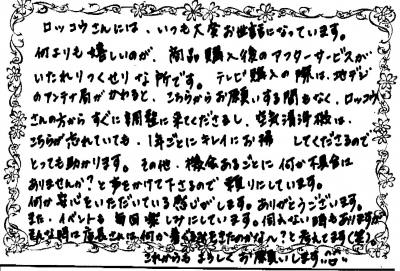 ロッコウさんには、いつも大変お世話になっています。
何よりも嬉しいのが、商品購入後のアフターサービスが
いたれりつくせりな所です。テレビ購入の際は、地デジ
のアンテナ局がかわると、こちらからお願いする間もなく、ロッコウ
さんの方からすぐに調整に来てくださるし、空気清浄機は、
こちらが忘れていても、1年ごとにキレイにお掃 してくださるので
とっても助かります。その他、機会あるごとに何か不具合は
ありませんか?と声をかけて下さるので頼りにしています。
何か安心をいただいている感じがします。ありがとうございます。
また、イベントも毎回楽しみにしています。伺えない時もありますが
そんな時は店長さんは何か着ぐるみをきたのかな〜?と考えてます(笑)。
これからもよろしくお願いします。